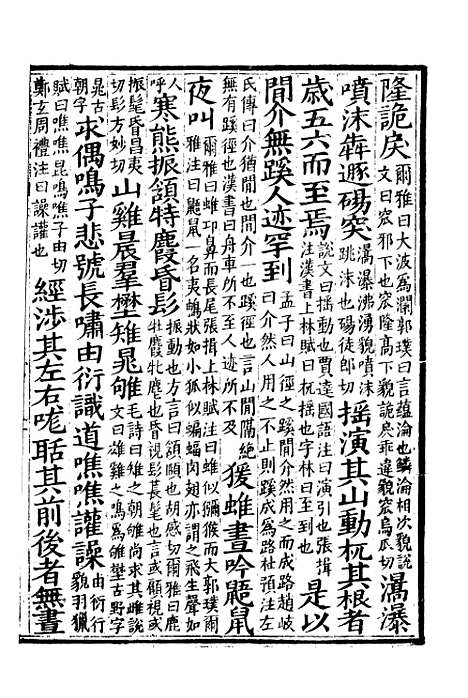 隆詭戾爾雅曰大波為瀾郭璞曰言蘊淪也鱗淪相次貌說文曰窊邪下也窊隆高下貌詭戾乖違貌窊烏瓜切㵧瀑
噴沫犇遯碭突㵧瀑沸湧貌噴沫跳沫也碭徒郎切搖演其山動杌其根者
歲五六而至焉說文曰搖動也賈逵國語注曰演引也張揖注漢書上林賦曰杌搖也字林曰至到也是以
閒介無蹊人迹罕到孟子曰山徑之蹊閒介然用之而成路趙岐曰介然人用之不止則蹊成為路杜預注左
氏傳曰介猶閒也閒介一也蹊徑也言山閒隔絕無有蹊徑也漢書曰舟車所不至人迹所不及猨蜼晝吟鼯鼠
夜叫爾雅曰蜼卬鼻而長尾張揖上林賦注曰蜼似獼猴而大郭璞爾雅注曰鼯鼠一名夷鵅狀如小狐似蝙蝠肉翅亦謂之飛生聲如
人呼寒熊振頷特麚昏髟振動也方言曰頷頤也胡感切爾雅曰鹿牡麚牝麀也昏視髟長髦也言或顧視或
振髦昏昌夷切髟方妙切山雞晨羣壄雉晁雊毛詩曰雉之朝雊尚求其雌說文曰雄雉之鳴為雊壄古野字
晁古朝字求偶鳴子悲號長嘯由衍識道噍噍讙譟由衍行貌羽獵
賦曰噍噍昆鳴噍子由切鄭玄周禮注曰譟讙也經涉其左右哤聒其前後者無晝